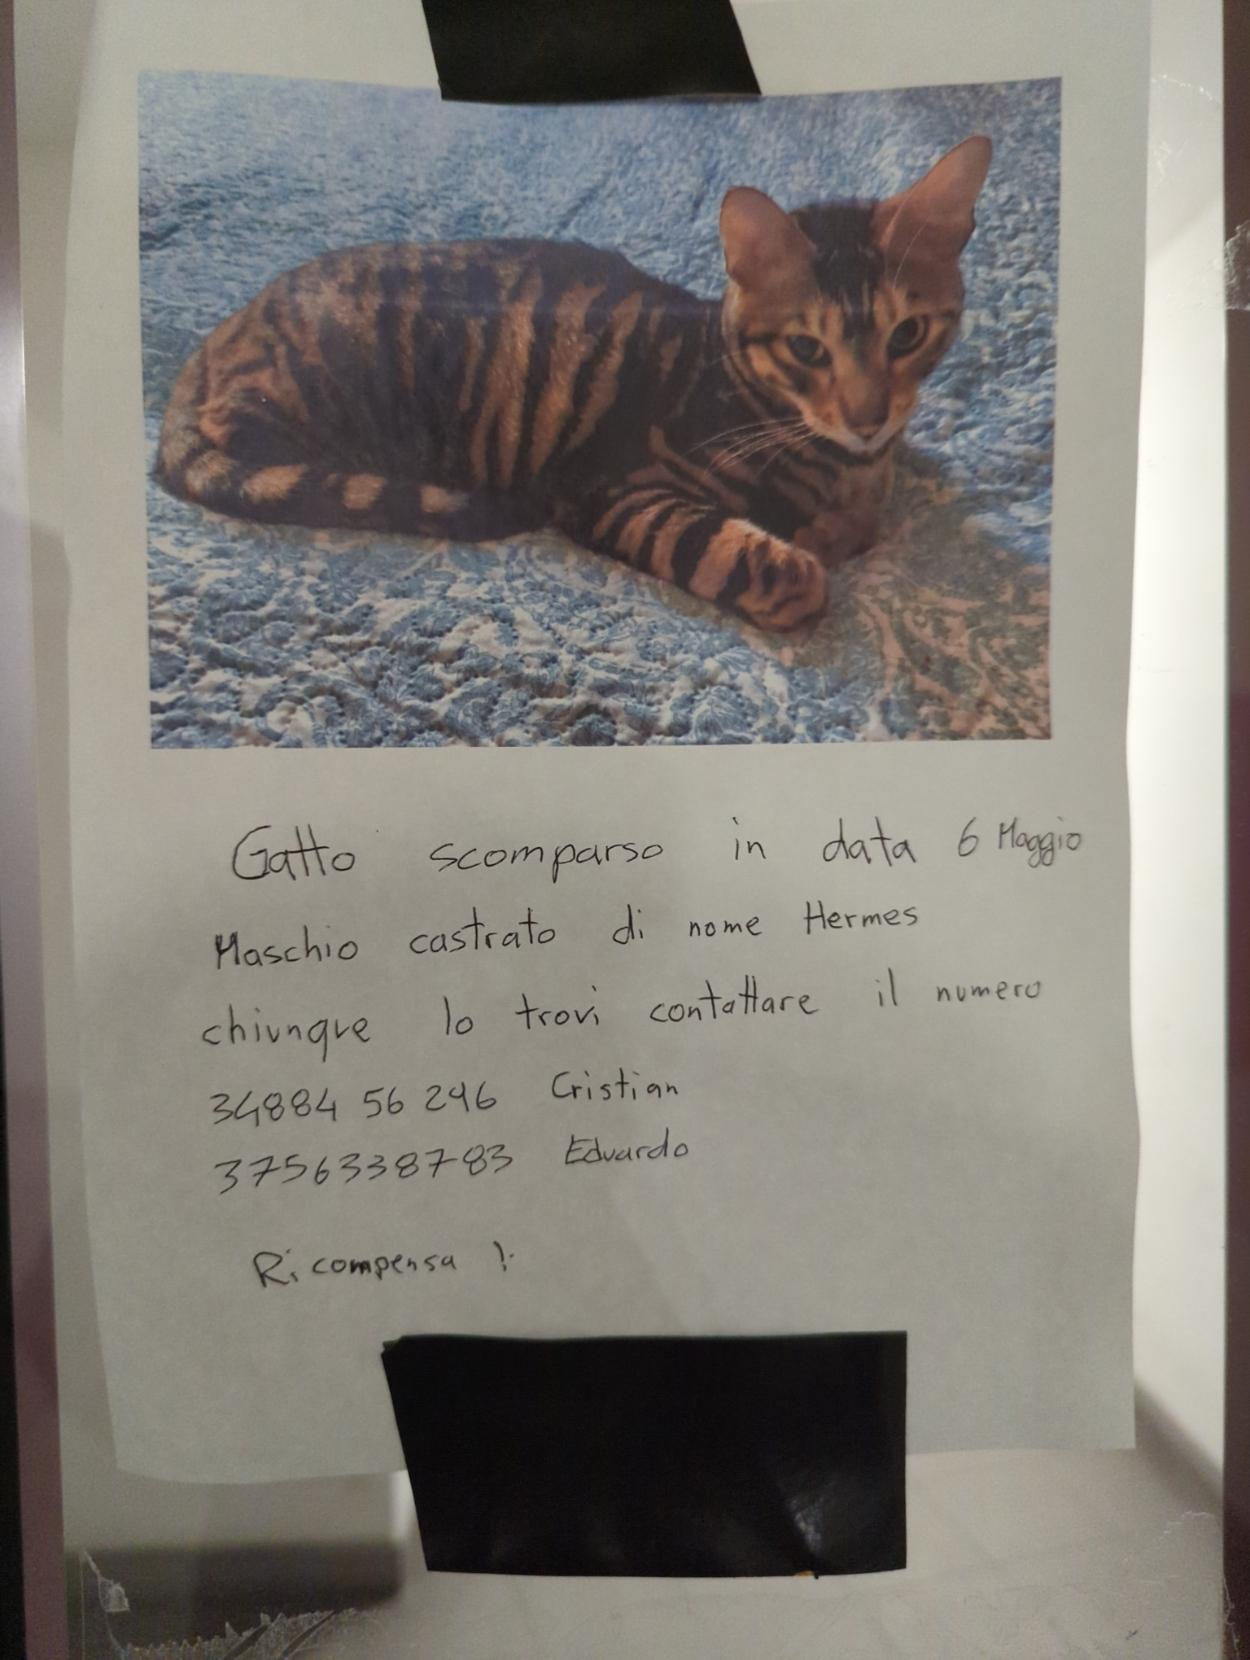 Gatto scomparso in data 6 Maggio
Maschio castrato di nome Hermes
chiunque lo trovi contattare il numero
34884 56 246 Cristian
3756338783 Eduardo
Ricompensa !